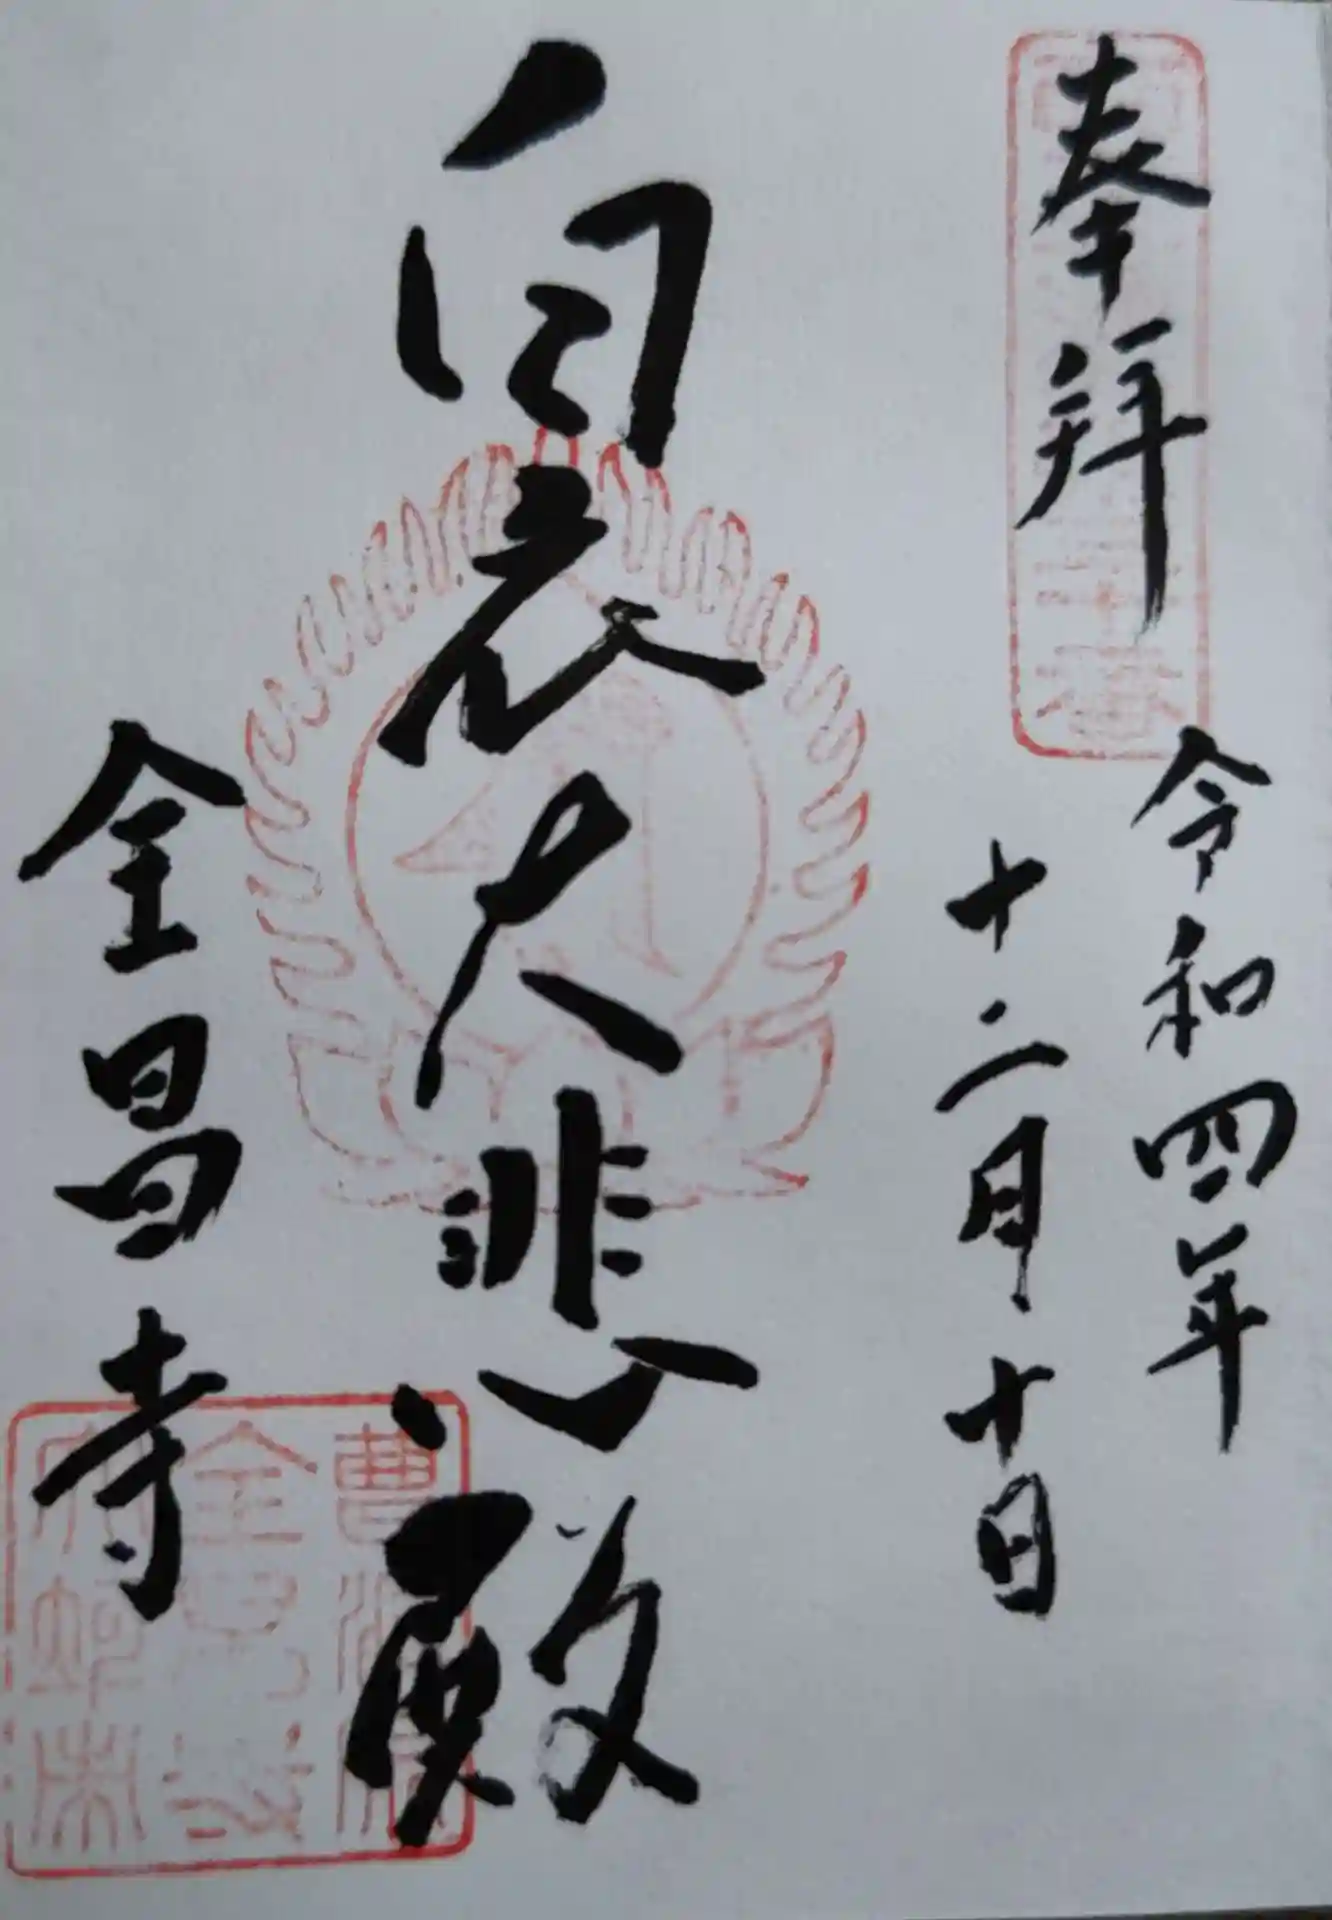 奉拝
令和四年
十二月十日
白衣大悲殿
全昌寺